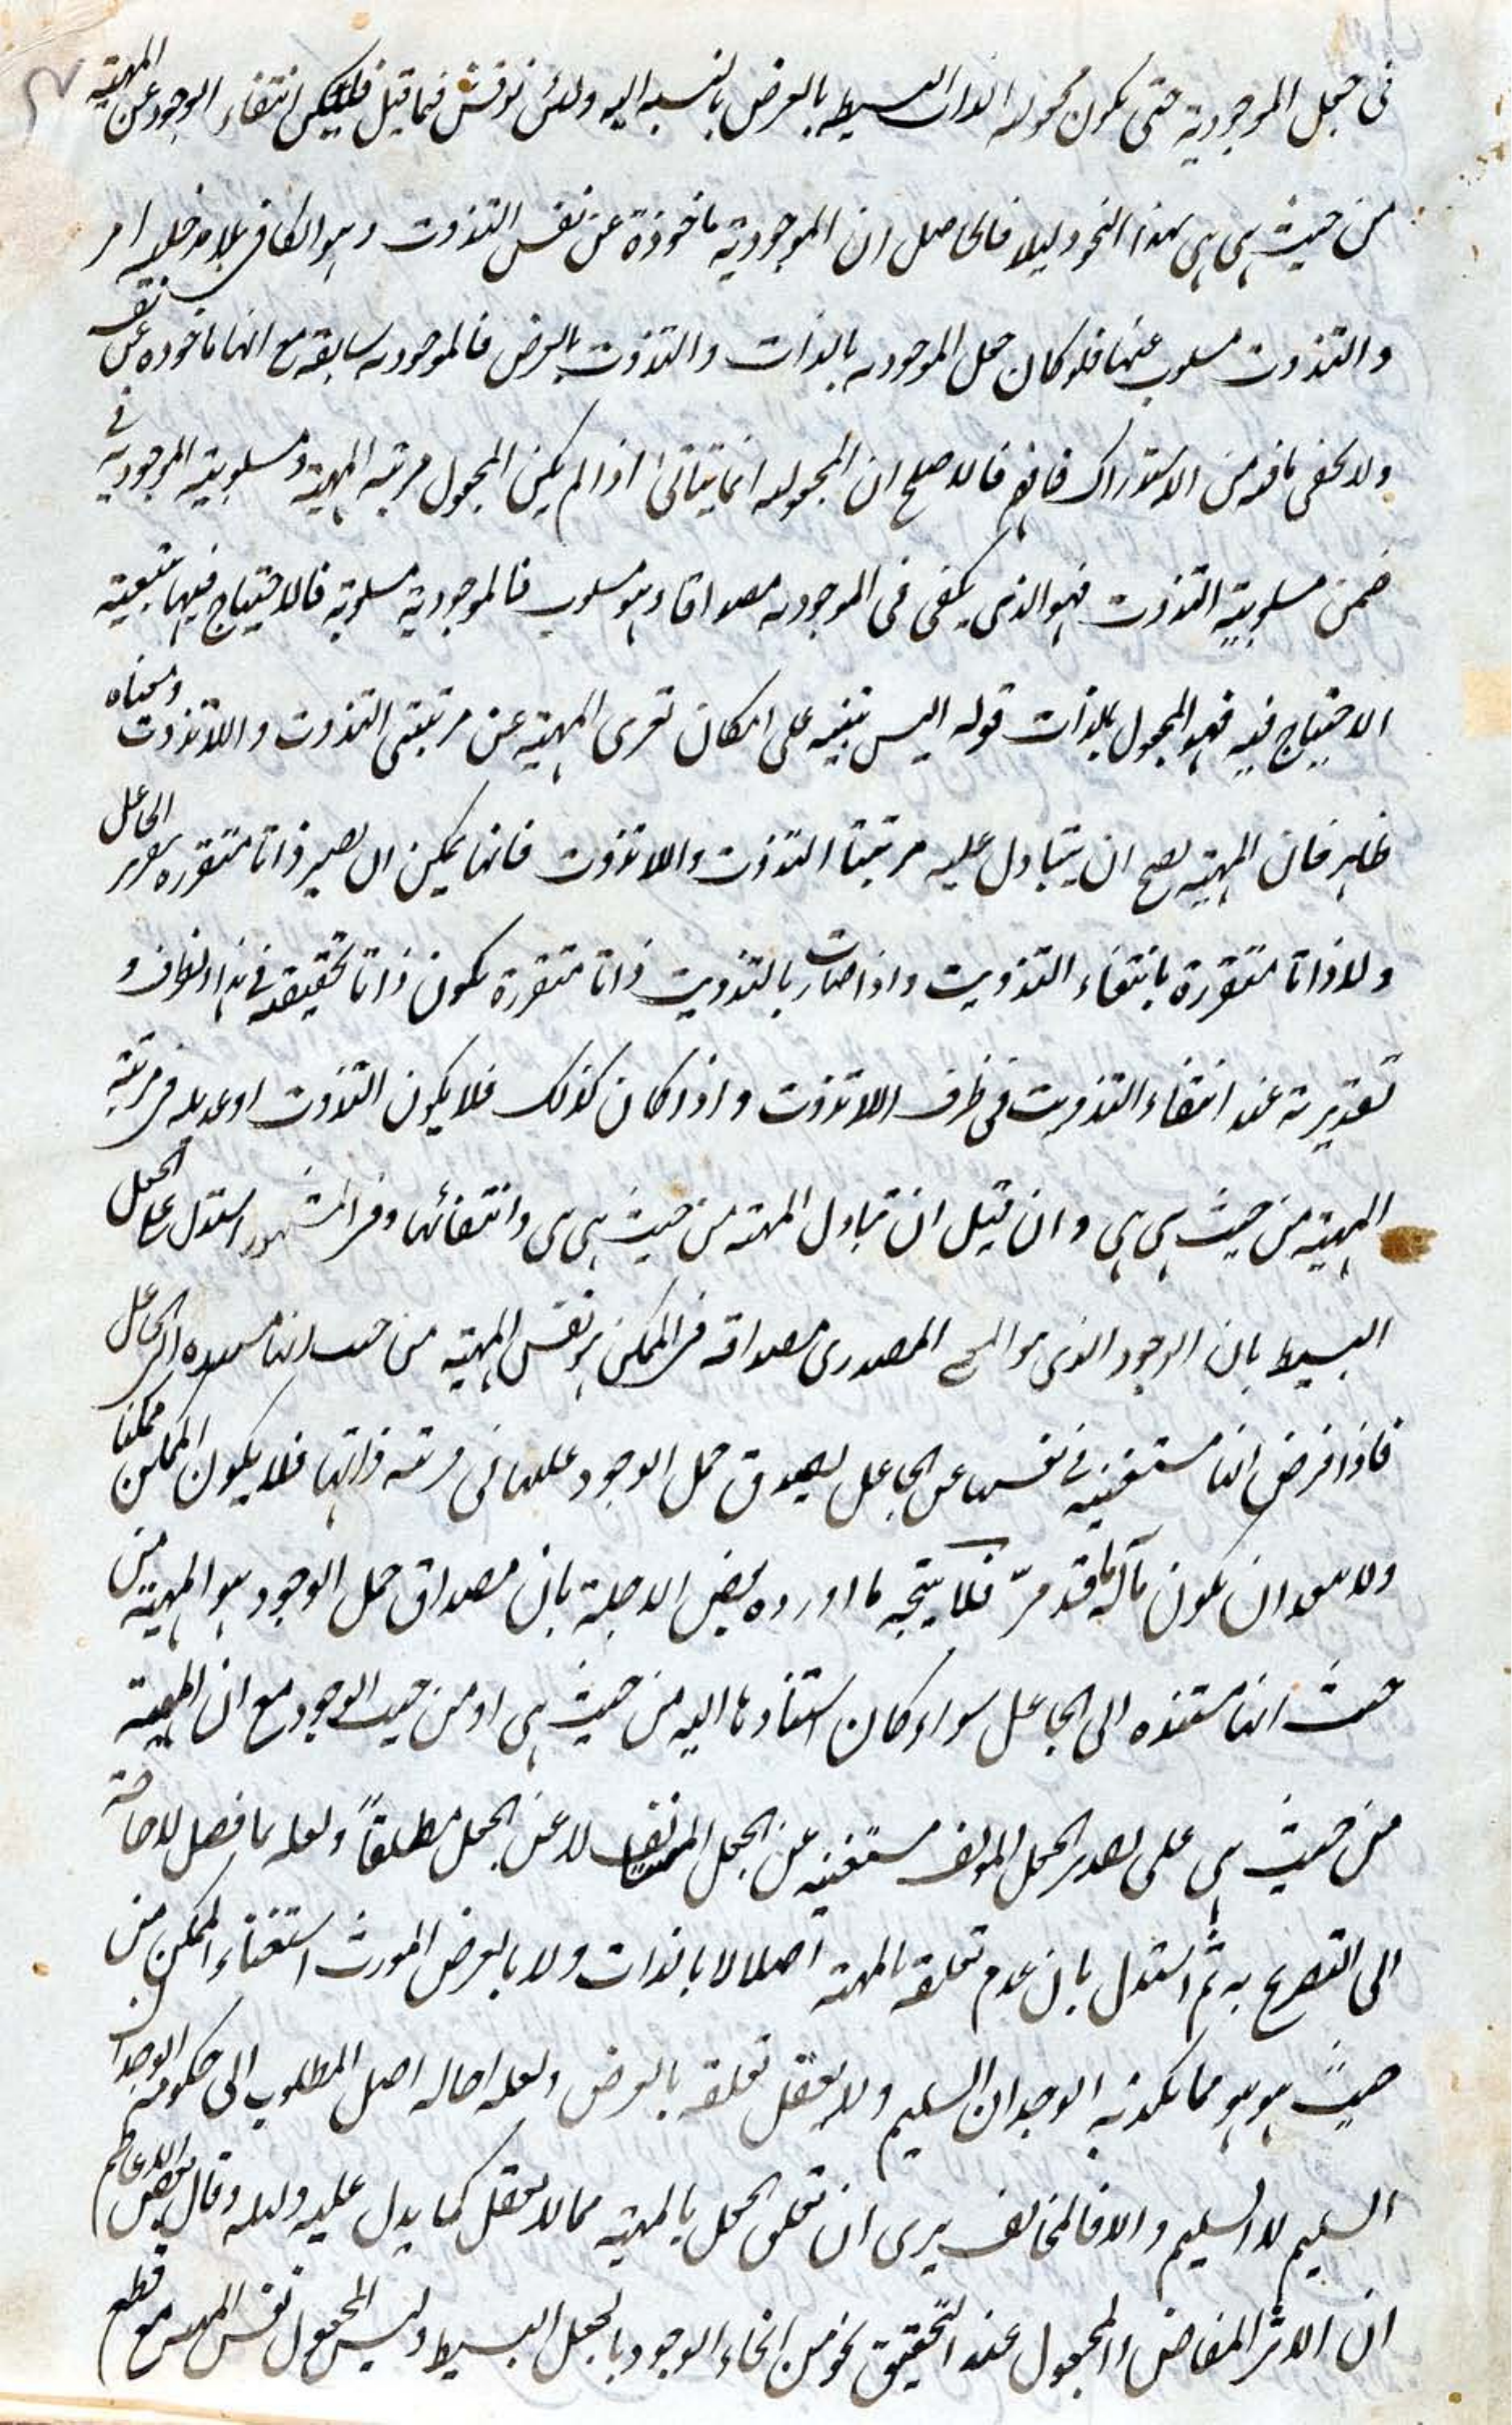 فى جعل الموجودية حتى يكون مجعولية الذات البسيطه بالعرض بالنسبه اليه ولئن نوقش فيما قيل فليكن انتفاء الوجود عن المهية
من حيث هى هى بهذا النحو دليلا فالحاصل ان الموجودية ماخوذة عن نفس التذوت وهو الكافى بلا مدخلية امر
والتذوت مسلوب عنها فلو كان جعل الموجوديه بالذات والتذوت بالعرض فالموجوديه سابقة مع انها ماخوذه عن نفسه
ولا يخفى ما فيه من الاستدراك فافهم فالاصلح ان المجعوليه انما يتاتى اذا لم يكن المجعول مرتبه المهية ومسلوبية الموجودية فى
ضمن مسلوبية التذوت فهو الذى يكفى فى الموجوديه مصداقا وهو مسلوب فالموجودية مسلوبة فالاحتياج فيها بتبعية
الاحتياج فيه فهو المجعول بالذات قوله اليس تنبيه على امكان تعرى المهية عن مرتبتى التذوت واللاتذوت ومعناه
ظاهر فان المهية يصح ان يتبادل عليه مرتبتا التذوت واللاتذوت فانها يمكن ان يصير ذاتا متقرره بتقرير الجاعل
ولا ذاتا متقررة بانتفاء التذويت واذا صارت بالتذويت ذاتا متقررة يكون ذاتا تحقيقية فى هذا الظرف و
تقديرية عند انتفاء التذويت فى ظرف اللاتذوت واذا كان كذلك فلا يكون التذوت او عديله فى مرتبة
المهية من حيث هى هى وان قيل ان تبادل المهية من حيث هى هى وانتفائها وفى المشهور استدل على الجعل
البسيط بان الوجود الذى هو المعنى المصدرى مصداقه فى الممكن هو نفس المهية من حيث انها مستنده الى الجاعل
فاذا فرض انها مستغنيه فى نفسها عن الجاعل يصدق حمل الوجود عليها فى مرتبه ذاتها فلا يكون الممكن ممكنا
ولا يبعد ان يكون مآله ما قد مرّ فلا يتجه ما اورده بعض الاجلة بان مصداق حمل الوجود هو المهية من
حيث انها مستنده الى الجاعل سواء كان استنادها اليه من حيث هى او من حيث الوجود مع ان المهية
من حيث هى على تقدير الجعل المولف مستغنيه عن الجعل لا عن الجعل مطلقاً ولعله بما فصل لا حاجة
الى التصريح به ثم استدل بان عدم تعلقه بالمهية اصلا لا بالذات ولا بالعرض المورث استغناء الممكن من
حيث هو هو مما يكذبه الوجدان السليم ولا يعقل تعلقه بالعرض ولعله احاله اصل المطلوب الى حكومة الوجدان
السليم لا السليم والا فالمخالف يرى ان تعلق الجعل بالمهية مما لا يعقل كما يدل عليه دليله وقال بعض الاعاظم
ان الاثر المفاض والمجعول عند التحقيق نحو من انحاء الوجود بالجعل البسيط وليس المجعول نفس المهية مع قطع